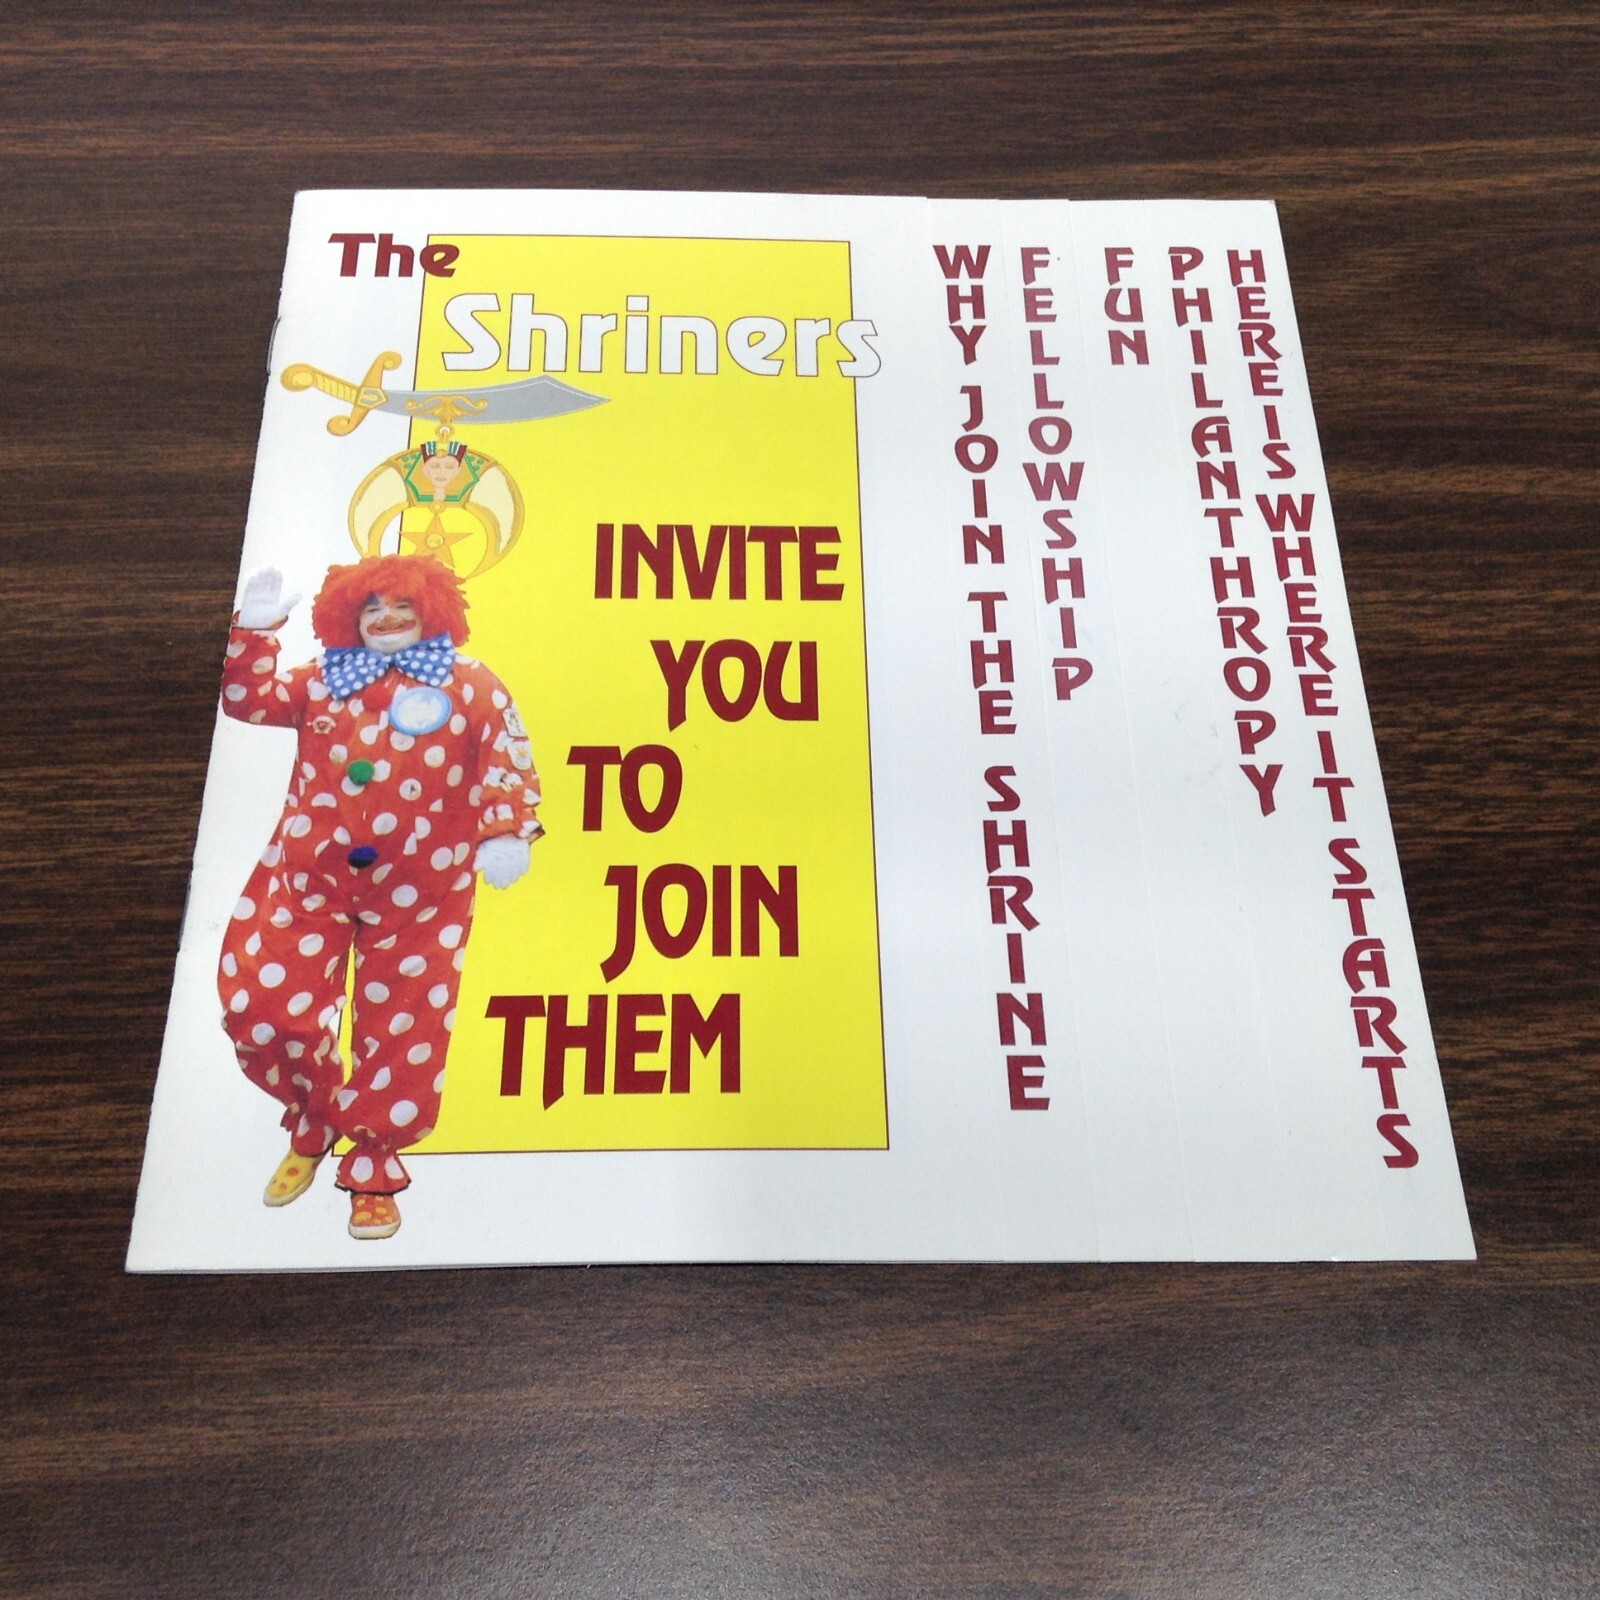 The
Shriners
INVITE
YOU
TO
JOIN
THEM
WHY JOIN THE SHRINE
FELLOWSHIP
FUN
PHILANTHROPY
HERE IS WHERE IT STARTS